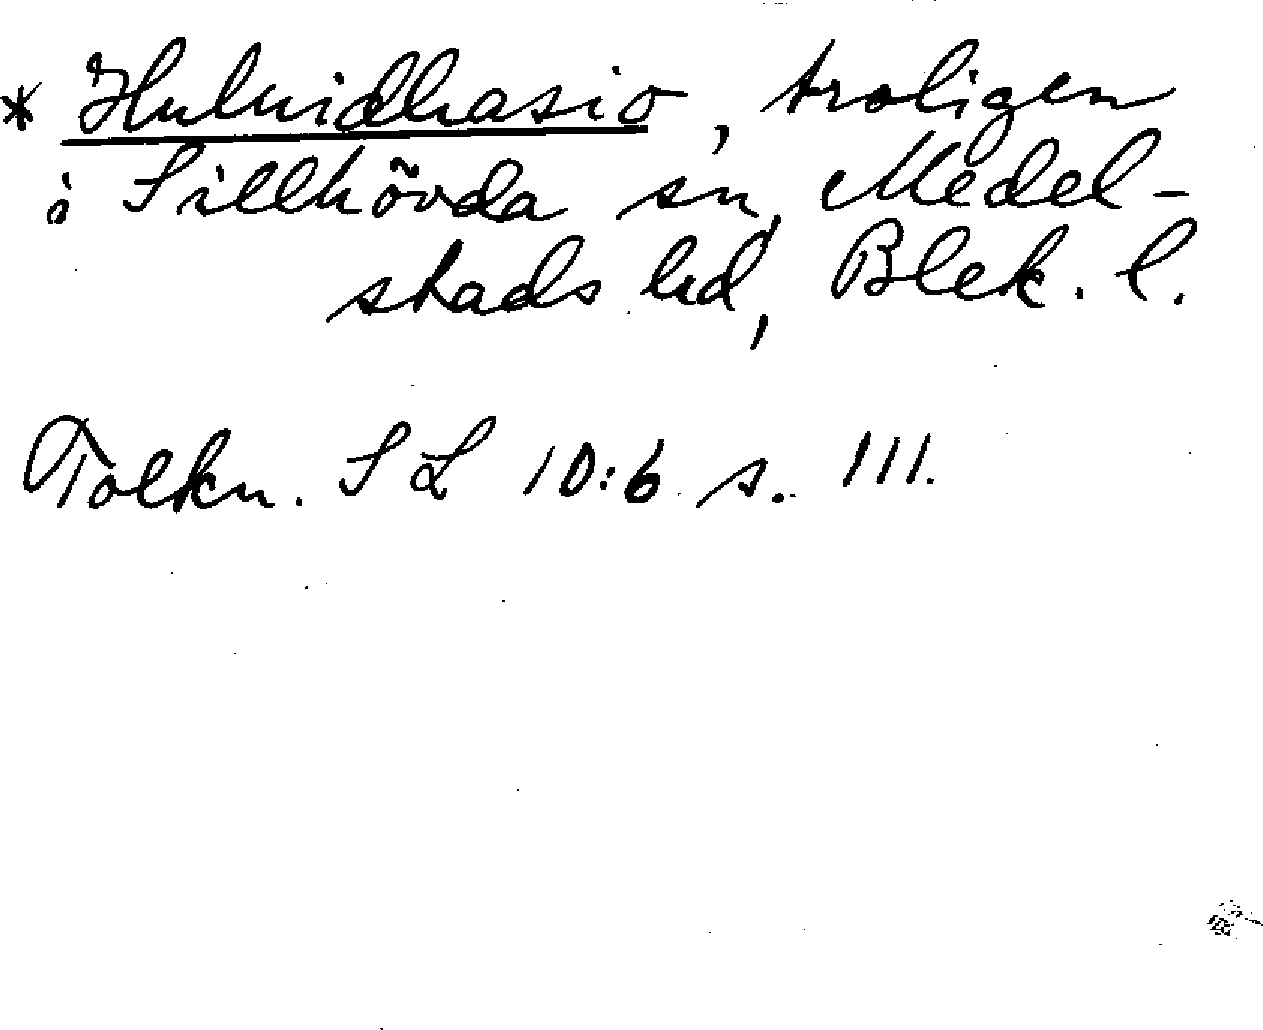 * Huluidhasio, troligen
i Sillhövda sn, Medel-
stads hd, Blek. l.
Tolkn. SL 10:6 s. 111.